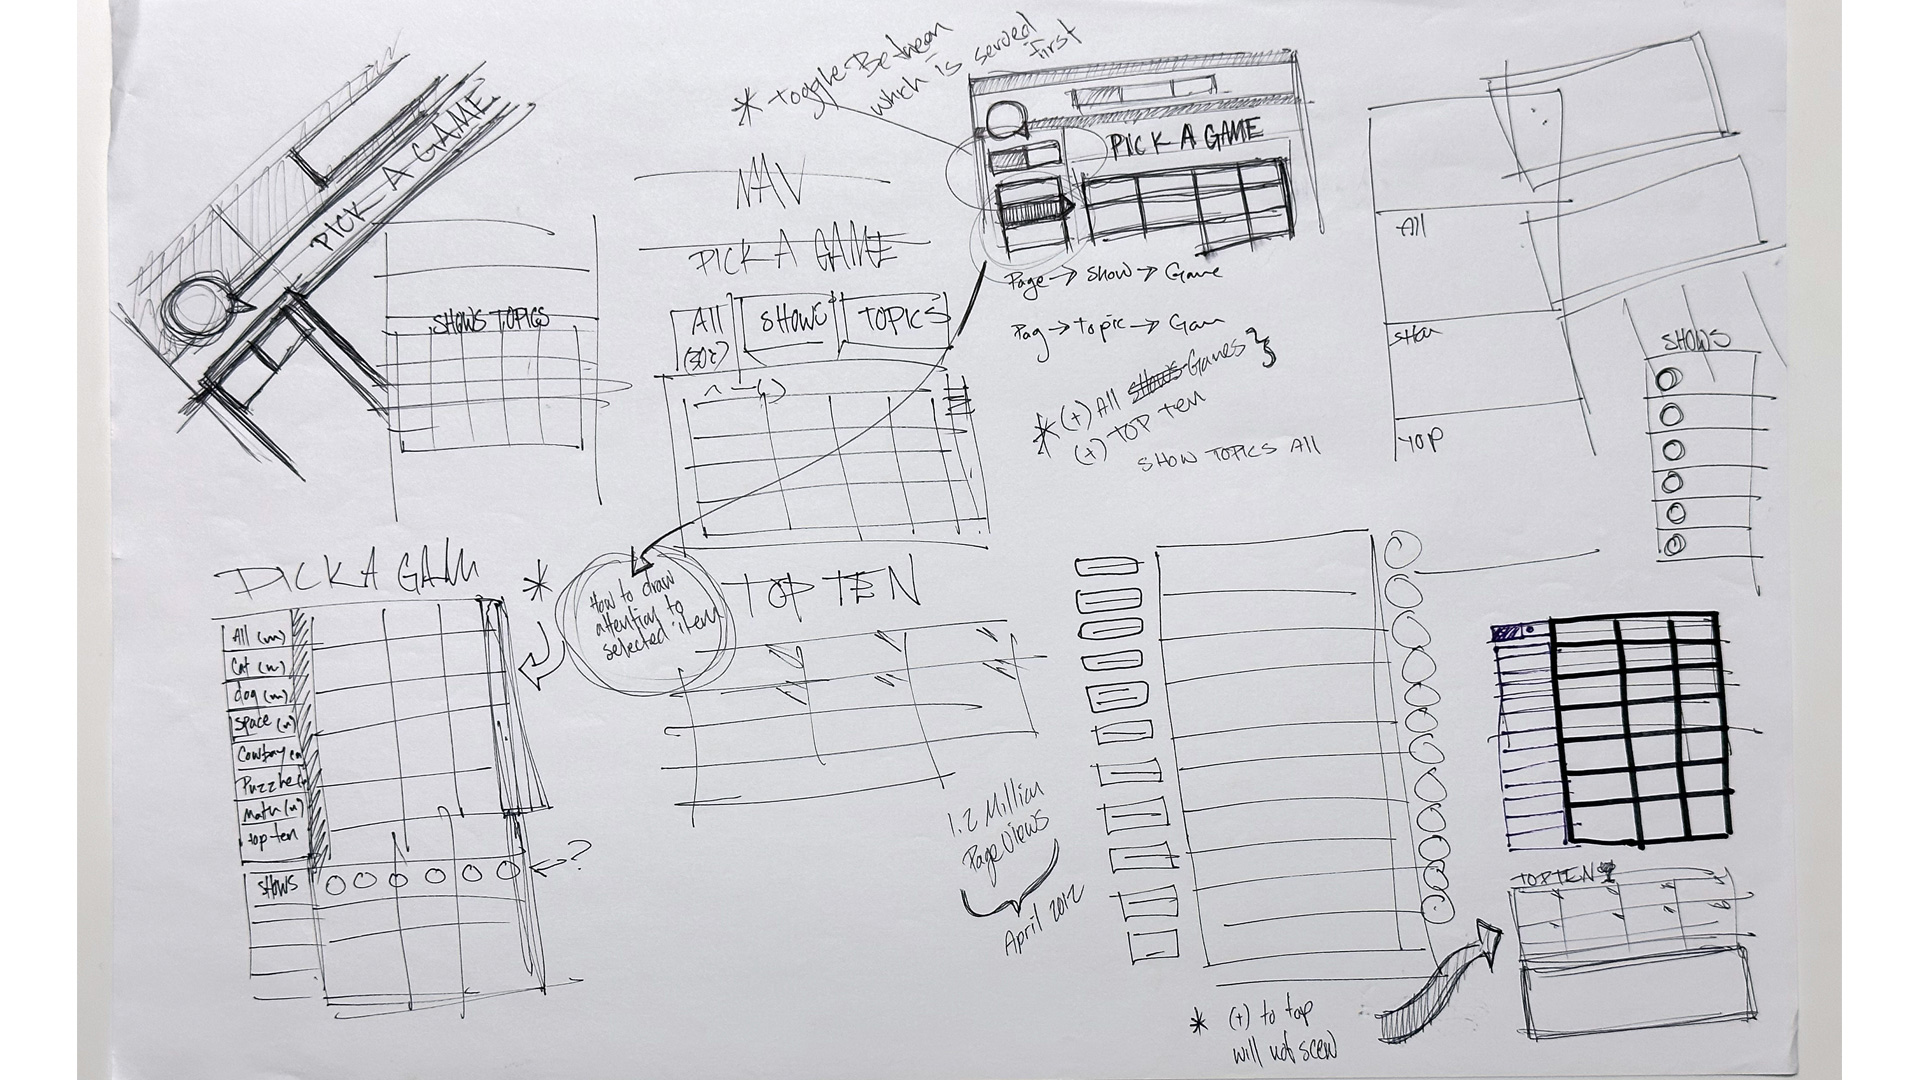 * toggle Between
which is served
first
PICK A GAME
SHOWS TOPICS
NAV
PICK A GAME
All
SHOWS
TOPICS
PICK A GAME
Page → Show → Game
Pag → topic → Gam
* (+) All shows Games }
(+) TOP ten
SHOW TOPICS All
All
TOP
SHOWS
PICK A GAM
*
All (m)
Cat (m)
dog (m)
space (n)
Cowboy
Puzzle
Math (n)
top ten
SHOWS
← ?
How to draw
attention to
selected item
TOP TEN
1.2 Million
Page Views
April 2012
TOP TEN
* (+) to top
will not